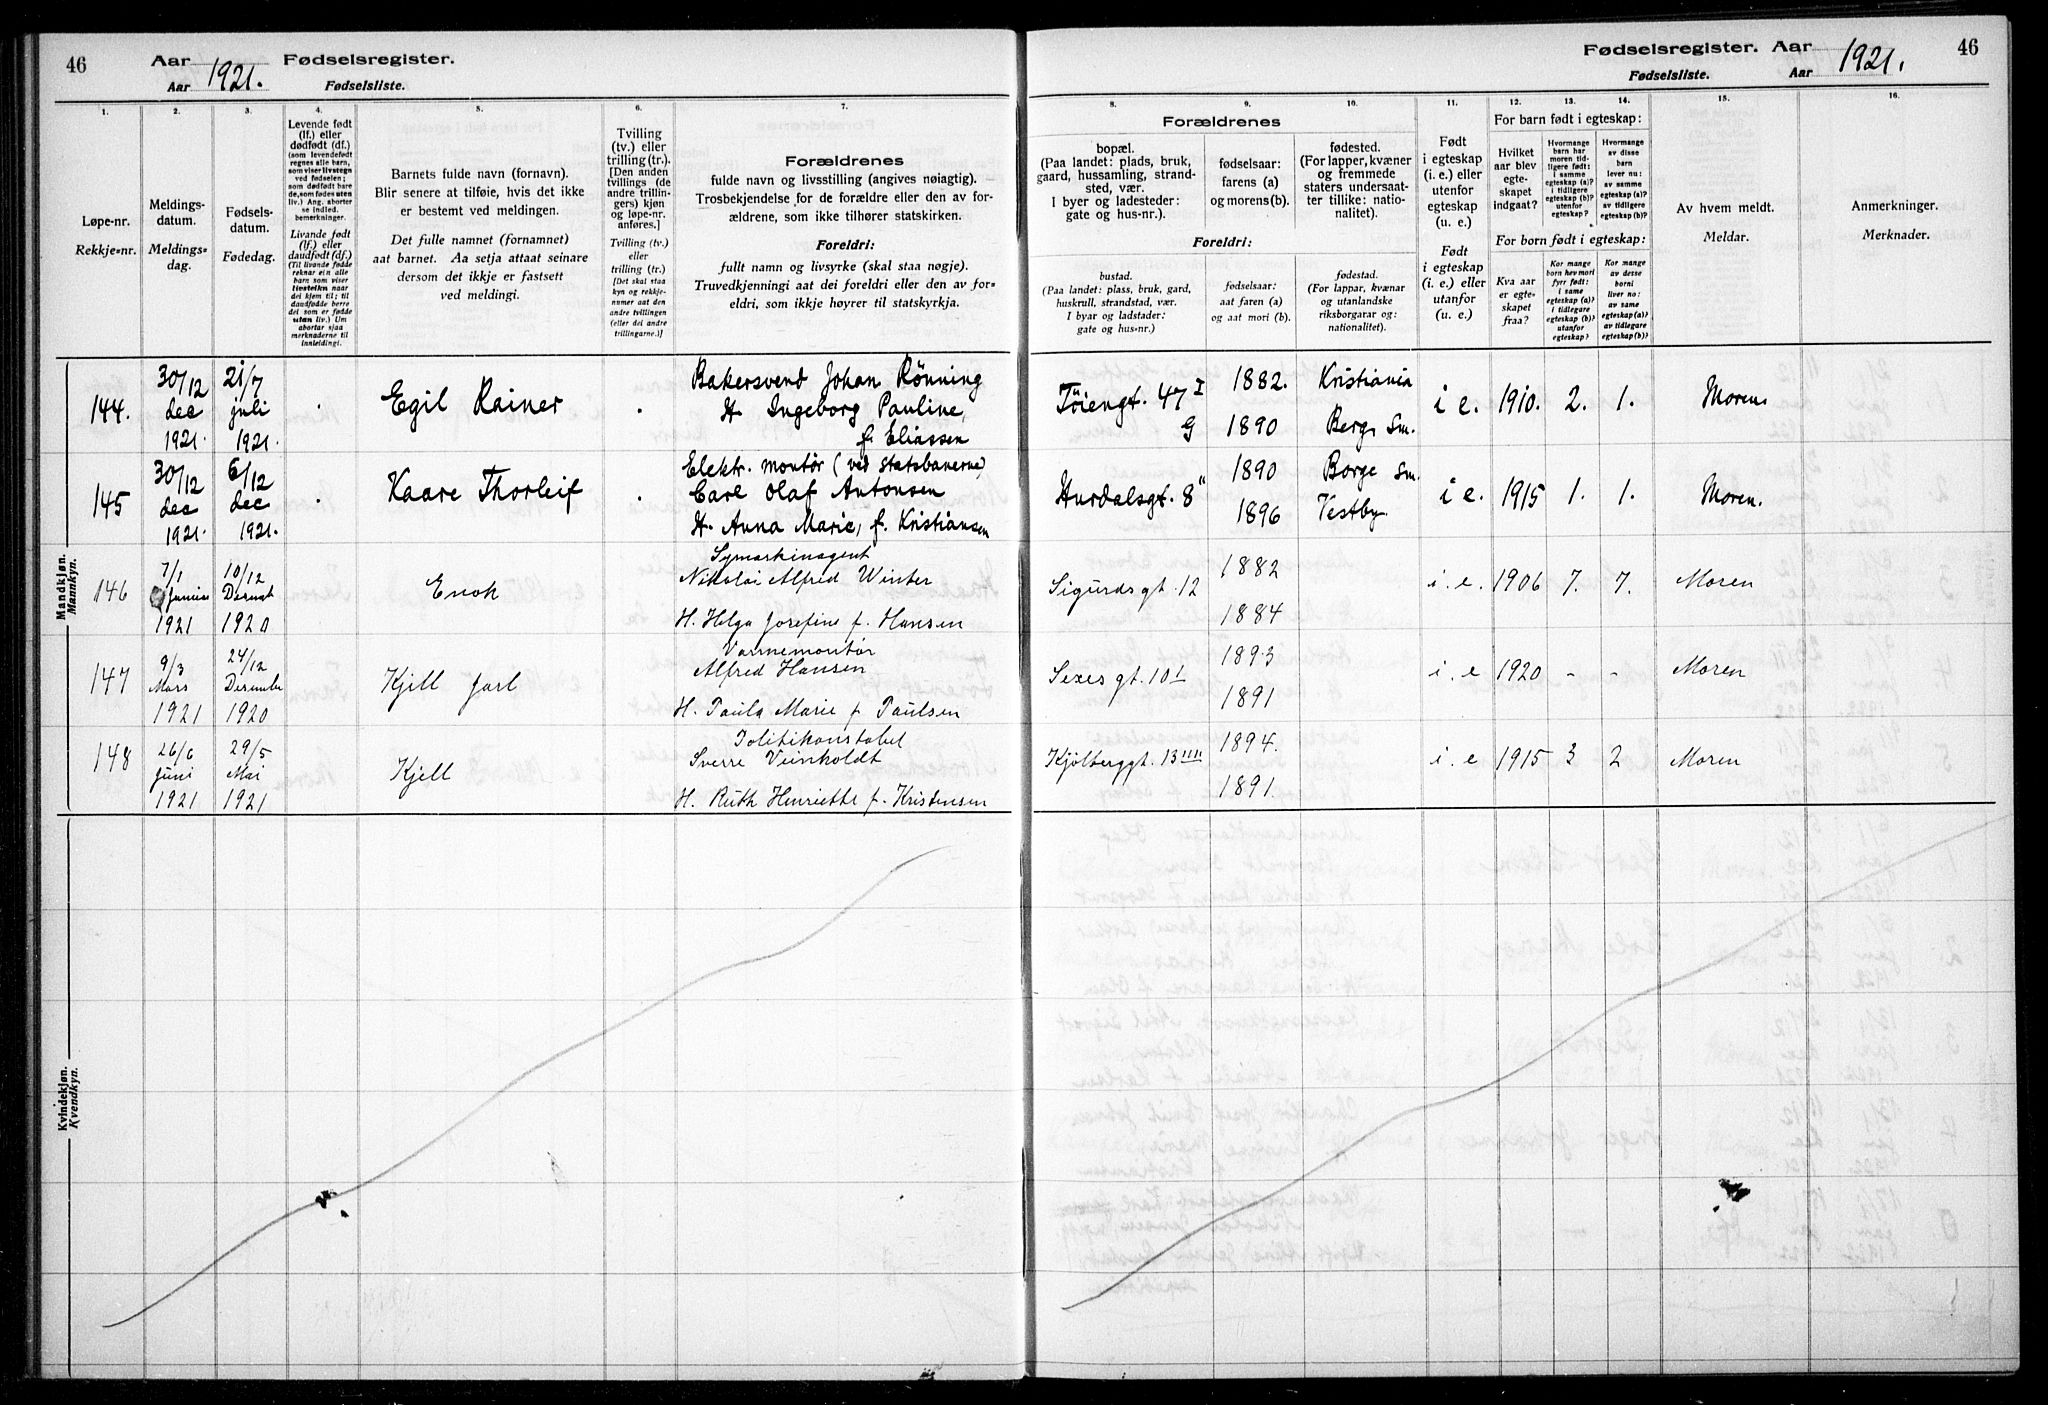 46
Aar
Aar
1921.
Fødselsregister.
Fødselsliste.
Fødselsregister. Aar
Fødselsliste.
Aar
1921.
46
1.
Løpe-nr.
Rekkje-nr.
2.
Meldings-
datum.
Meldings-
dag.
3.
Fødsels-
datum.
Fødedag.
4.
Levende født
(lf.) eller
dødfødt (df.)
(som levendefødt
regnes alle barn,
som viser livstegn
ved fødselen;
som dødfødt bare
de, som fødes uten
liv.) Ang. aborter
se indled.
bemerkninger.
Livande født
(lf.) eller
daudfødt (df.)
(Til livande fødde
reknar ein alle
barn som viser
livsteikn naar
dei kjem til; til
daudfødde berre
dei som er fødde
utan liv.) Um
abortar sjaa
merknaderne til
innleidingi.
5.
Barnets fulde navn (fornavn).
Blir senere at tilføie, hvis det ikke
er bestemt ved meldingen.
Det fulle namnet (fornamnet)
aat barnet. Aa setja attaat seinare
dersom det ikkje er fastsett
ved meldingi.
6.
Tvilling
(tv.) eller
trilling (tr.).
[Den anden
tvillings (de
andre trillin-
gers) kjøn
og løpe-nr.
anføres.]
Tvilling (tv.)
eller
trilling (tr.)
[Det skal staa
kyn og rekkje-
numer aat den
andre tvillingen
(eller dei andre
trillingarne.)]
7.
Forældrenes
fulde navn og livsstilling (angives nøiagtig).
Trosbekjendelse for de forældre eller den av for-
ældrene, som ikke tilhører statskirken.
Foreldri:
fullt namn og livsyrke (skal staa nøgje).
Truvedkjenningi aat dei foreldri eller den av for-
eldri, som ikkje høyrer til statskyrkja.
Forældrenes
8.
bopæl.
(Paa landet: plads, bruk,
gaard, hussamling, strand-
sted, vær.
I byer og ladesteder:
gate og hus-nr.).
9.
fødselsaar:
farens (a)
og morens (b).
10.
fødested.
(For lapper, kvæner
og fremmede
staters undersaat-
ter tillike: natio-
nalitet).
Foreldri:
bustad.
(Paa landet: plass, bruk, gard,
huskrull, strandstad, vær.
I byar og ladstader:
gate og hus-nr.)
fødselsaar:
aat faren (a)
og aat mori (b).
fødestad.
(For lappar, kvænar
og utanlandske
riksborgarar og:
nationalitet).
11.
Født
i egteskap
(i. e.) eller
utenfor
egteskap
(u. e.)
Født
i egteskap
(i. e.) eller
utanfor
(u. e.)
For barn født i egteskap:
12.
Hvilket
aar blev
egte-
skapet
indgaat?
13.
Hvormange
barn har
moren tid-
ligere født:
i samme
egteskap (a)?
i tidligere
egteskap (b)?
utenfor
egteskap?
14.
Hvormange
av disse
barn
lever nu:
av samme
egteskap (a)?
av tidligere
egteskap (b)?
For born født i egteskap:
Kva aar
er egte-
skapet
fraa?
Kor mange
born hev mori
fyrr født:
i same
egteskap (a)?
i tidlegare
egteskap (b)?
utanfor
egteskap?
Kor mange
av desse
borni
liver no:
av same
egteskap (a)?
av tidlegare
egteskap (b)?
15.
Av hvem meldt.
Meldar.
16.
Anmerkninger.
Merknader.
Mandkjøn.
Mannkyn.
144.
30/12
dec
1921.
21/7
juli
1921.
Egil Rainer
Bakersvend Johan Rönning
H. Ingeborg Pauline,
f. Eliassen
Töiengt. 47 I
G
1882.
1890
Kristiania
Berg Sm.
i e.
1910.
2.
1.
Moren
145
30/12
dec
1921.
6/12
dec
1921.
Kaare Thorleif
Elektr. montør (ved statsbanerne)
Carl Olaf Antonsen
H. Anna Marie, f. Kristiansen
Hurdalsgt. 8 II
1890
1896
Borge Sm.
Vestby
i e.
1915
1.
1.
Moren.
146
7/1
1921
10/12
1920
Enok
Symaskinagent
Nikolai Alfred Winter
H. Helga Josefine f. Hansen
Sigurdsgt. 12
1882
1884
i. e.
1906
7.
7.
Moren
147
9/3
Mars
1921
24/12
1920
Kjell Jarl
Varmemontør
Alfred Hansen
H. Paula Marie f. Paulsen
Sexesgt. 10 I
1893
1891
i. e
1920
-
-
Moren
148
26/6
Juni
1921
29/5
Mai
1921
Kjell
Politikonstabel
Sverre Veinholdt
H. Ruth Henriette f. Kristensen
Kjölberggt. 13 IIII
1894.
1891.
i. e
1915
3
2
Moren
Kvindekjøn.
Kvendkyn.